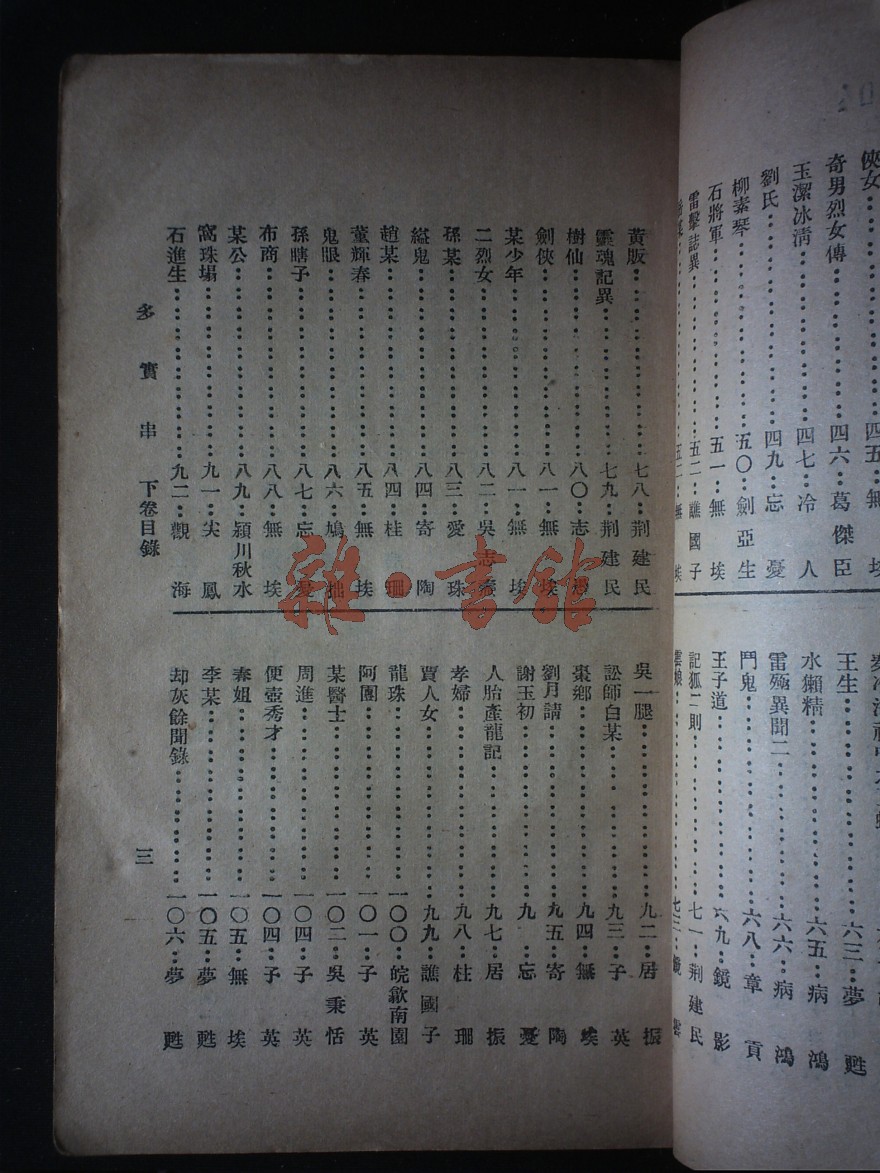 俠女……四五…無埃
奇男烈女傳……四六…葛傑臣
玉潔冰清……四七…冷人
劉氏……四九…忘憂
柳素琴……五〇…劍亞生
石將軍……五一…無埃
雷擊誌異……五二…譙國子
王生……六三…夢甦
水獺精……六五…病鴻
雷殛異聞二……六六…病鴻
鬥鬼……六八…章貢
王子道……六九…鏡影
記狐二則……七一…荆建民
雲娘
黃販……七八…荆建民
靈魂記異……七九…荆建民
樹仙……八〇…志
劍俠……八一…無埃
某少年……八一…無埃
二烈女……八二…吳志
孫某……八三…愛珠
縊鬼……八四…寄陶
趙某……八四…桂珊
董輝春……八五…無埃
鬼眼……八六…鳩拙
孫瞎子……八七…忘憂
布商……八八…無埃
某公……八九…潁川秋水
窩珠塲……九一…尖鳳
石進生……九二…觀海
吳一腿……九二…居振
訟師白某……九三…子英
棗鄉……九四…無埃
劉月請……九五…寄陶
謝玉初……九…忘憂
人胎產龍記……九七…居振
孝婦……九八…桂珊
賈人女……九九…譙國子
龍珠……一〇〇…皖歙南園
阿團……一〇一…子英
某醫士……一〇二…吳秉恬
周進……一〇四…子英
便壺秀才……一〇四…子英
春姐……一〇五…無埃
李某……一〇五…夢甦
却灰餘聞錄……一〇六…夢甦
多寶串 下卷目錄
三
雜·書館